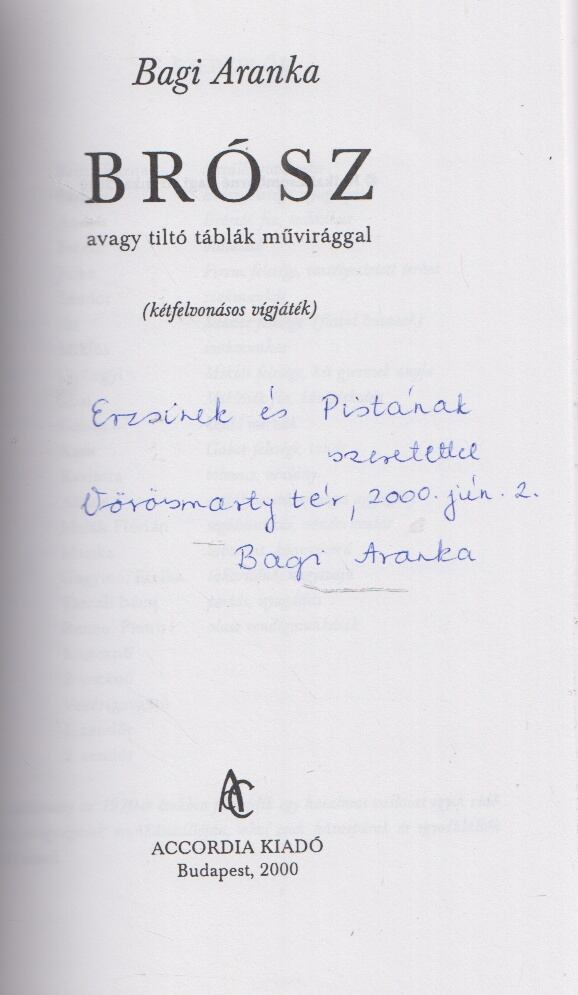 Bagi Aranka
BRÓSZ
avagy tiltó táblák művirággal
(kétfelvonásos vígjáték)
Erzsinek és Pistának
szeretettel
Vörösmarty tér, 2000. jún. 2.
Bagi Aranka
ACCORDIA KIADÓ
Budapest, 2000